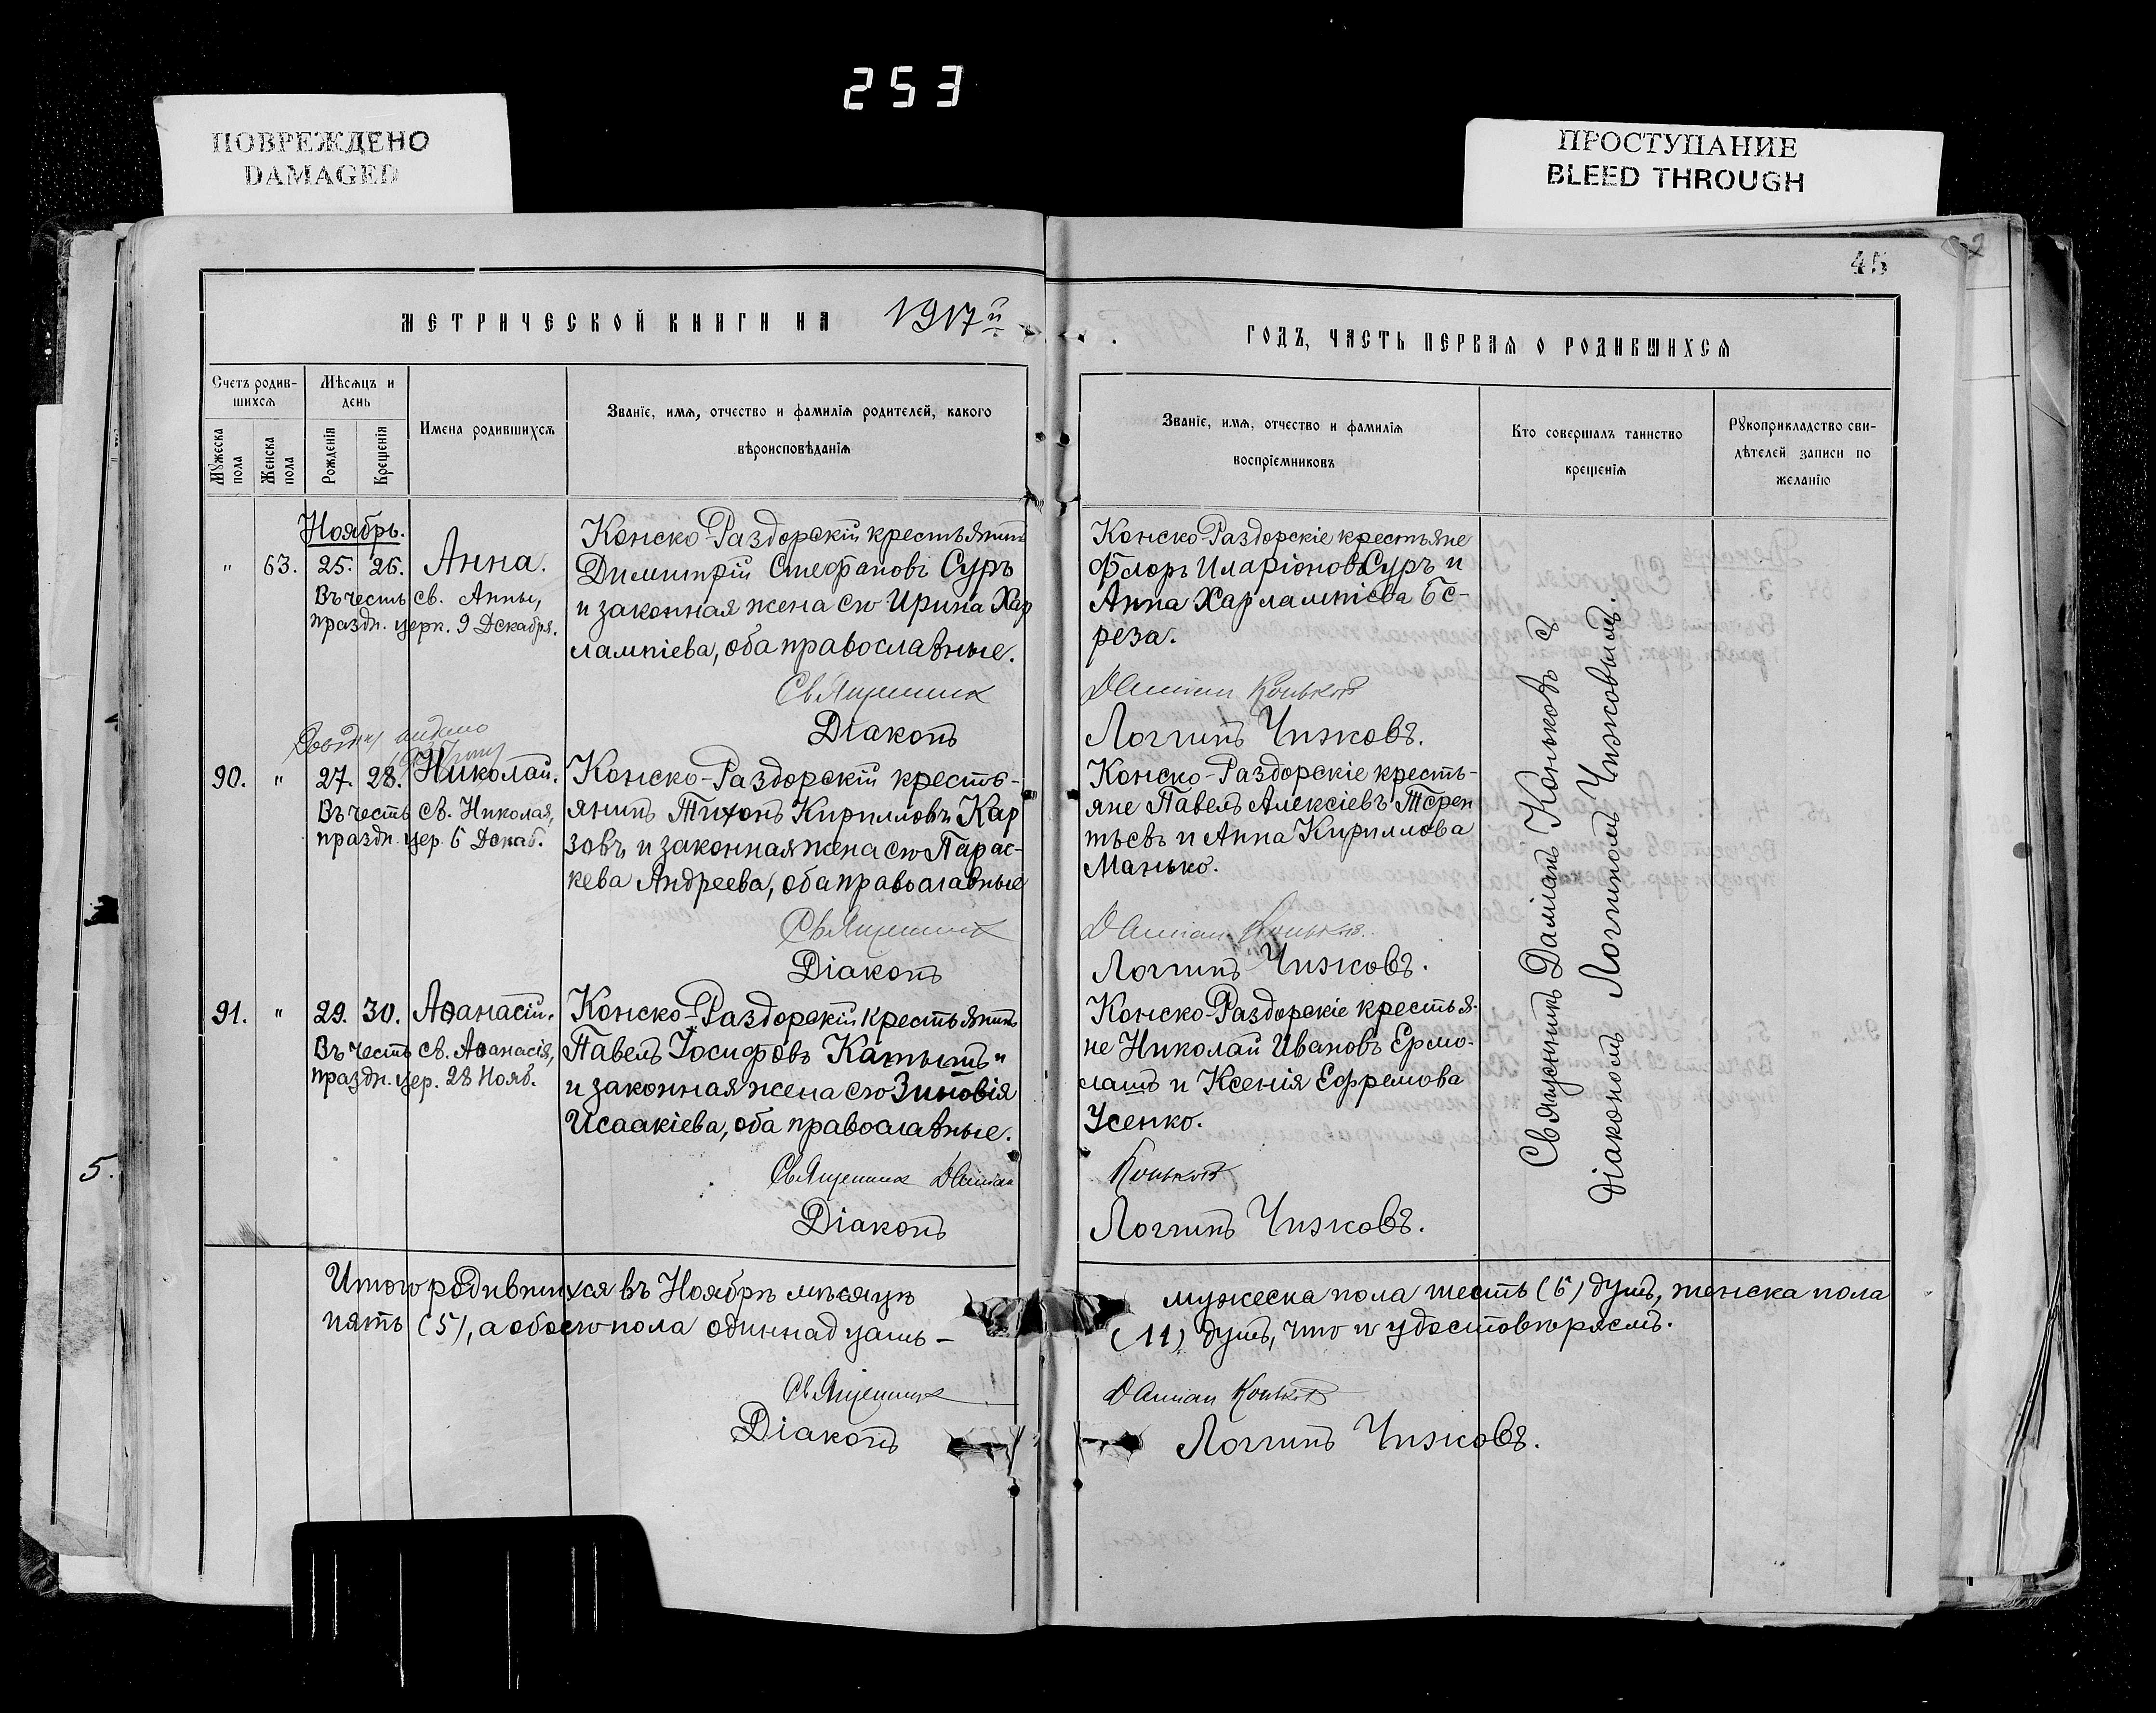 253
ПОВРЕЖДЕНО
DAMAGED
ПРОСТУПАНИЕ
BLEED THROUGH
45
МЕТРИЧЕСКОЙ КНИГИ НА 1917й
ГОДЪ, ЧАСТЬ ПЕРВАЯ О РОДИВШИХСЯ
Счетъ родив-
шихся
Мужеска пола
Женска пола
Мѣсяцъ и
день
Рожденія
Крещенія
Имена родившихся
Званіе, имя, отчество и фамилія родителей, какого
вѣроисповѣданія
Званіе, имя, отчество и фамилія
воспріемниковъ
Кто совершалъ таинство
крещенія
Рукоприкладство сви-
дѣтелей записи по
желанію
Ноябрь.
" 63. 25. 26. Анна.
Въ честь св. Анны,
праздн. церк. 9 Декабря.
Конско-Раздорскій крестьянинъ
Димитрій Стефановъ Суръ
и законная жена его Ирина Хар
лампіева, оба православные.
Священник
Діаконъ
Конско-Раздорскіе крестьяне
Флоръ Иларіоновъ Суръ и
Анна Харлампіева Бе-
реза.
Даміан Коньков
Логгинъ Чижковъ.
видано
90. " 27. 28. Николай.
Въ честь св. Николая,
праздн. цер. 6 Декаб.
Конско-Раздорскій кресть-
янинъ Тихонъ Кирилловъ Кар
зовъ и законная жена его Парас-
кева Андреева, оба православные
Священник
Діаконъ
Конско-Раздорскіе кресть-
яне Павелъ Алексіевъ Терен
тьевъ и Анна Кириллова
Манько.
Даміан Коньков.
Логгинъ Чижковъ.
91. " 29. 30. Аѳанасій.
Въ честь св. Аѳанасія,
праздн. цер. 28 Нояб.
Конско-Раздорскій крестьянинъ
Павелъ Іосифовъ
и законная жена его Зиновія
Исаакіева, оба православные.
Священник Даміан
Діаконъ
Конско-Раздорскіе крестья-
не Николай Ивановъ Ермо-
лашъ и Ксенія Ефремова
Усенко.
Коньков
Логгинъ Чижковъ.
Священникъ Даміанъ Коньковъ съ
діакономъ Логгиномъ Чижковымъ.
5.
Итого родившихся въ Ноябрѣ мѣсяцѣ
пять (5), а обоего пола одиннадцать-
Священник
Діаконъ
мужеска пола шесть (6) душъ, женска пола
(11) душъ, что и удостовѣряемъ.
Даміан Коньков
Логгинъ Чижковъ.